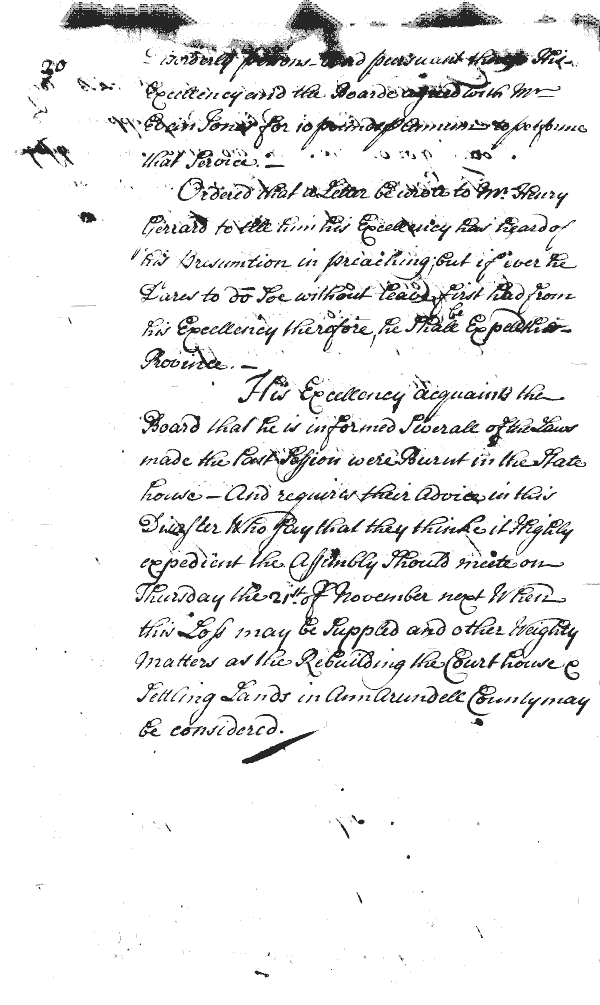 20
Disorderly persons and pursuant thereto His
Excellency and the Boarde agreed with Mr
Evan Jones for 10 pounds ⅌ annum to performe
that Service. —
Ordered that a Letter be wrote to Mr. Henry
Gerrard to tell him his Excellency has heard of
his Presumtion in preaching, but if ever he
Dares to do Soe without leave first had from
his Excellency therefore, he Shall be Expell this
Province. —
His Excellency acquaints the
Board that he is informed Severall of the Laws
made the Last Session were Burnt in the State
house — And requires their advice in this
Disaster Who Say that they thinke it Highly
expedient the Assembly Should meete on
Thursday the 21st of November next When
this Loss may be Suppled and other Weighty
Matters as the Rebuilding the Court house &
Settling Lands in Ann Arundell County may
be considered.